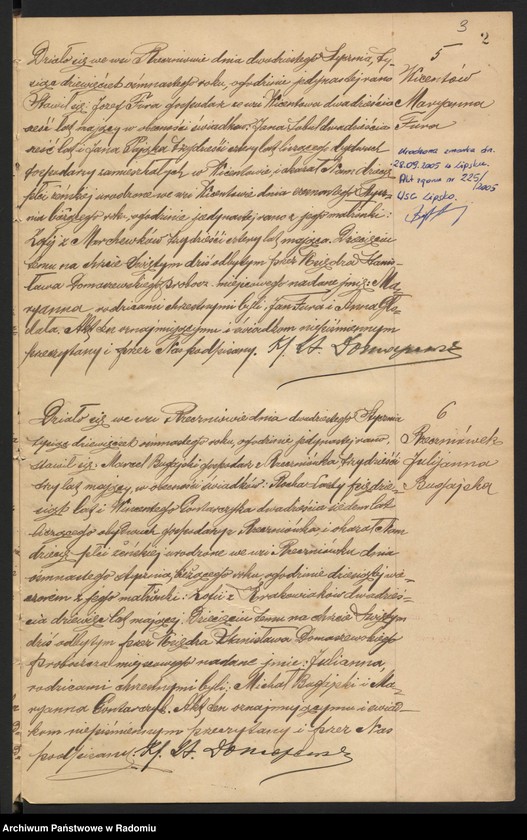 3 2
Działo się we wsi Rzeczniowie dnia dwudziestego Stycznia, Ty-
siąc dziewięćset ośmnastego roku, ogodzinie jedynastej rano
Stawił się: Józef Fura gospodarz ze wsi Wicentowa dwadzieścia
sześć lat mający w obecności świadków: Jana dwadzieścia
sześć lat i Jana trzydzieści cztery lat liczących
gospodarzy zamieszkałych w Wicentowie i okazał Nam dziecię
płci żeńskiej urodzone we wsi Wicentowie dnia ósmnastego Stycz-
nia bieżącego roku, ogodzinie jedynastej rano z jego małżonki:
Zofij z Marchewków trzydzieści cztery lat mającej. Dziecięciu
temu na Chrzcie Świętym dziś odbytym przez Księdza Stani-
sława Domaszewskiego Proboszcza miejscowego nadane imię: Ma-
ryanna, rodzicami chrzestnymi byli: Jan Fura i
Akt ten oznajmującemu i świadkom niepiśmiennym
przeczytany i przez Nas podpisany. Ks. St. Domaszewski
5
Wicentów
Maryanna
Fura
Urodzona zmarła dn.
28.09.2005 w Lipsku.
Akt zgonu nr 225/2005
USC Lipsko.
Działo się we wsi Rzeczniowie dnia dwudziestego Stycznia
tysiąc dziewięćset ośmnastego roku, ogodzinie jedynastej rano.
Stawił się: Marcel Bugajski gospodarz z Rzeczniówka trzydzieści
trzy lat mający, w obecności świadków: Rocha pięćdzie-
siąt lat i Wincentego Gontarczyka dwadzieścia siedem lat
liczącego obydwóch gospodarzy z Rzeczniówka, i okazał Nam
dziecię płci żeńskiej urodzone we wsi Rzeczniówku dnia
ośmnastego Stycznia bieżącego roku, ogodzinie dziesiątej wie-
czorem z jego małżonki: Zofii z Krakowiaków dwadzieś-
cia dziewięć lat mającej. Dziecięciu temu na Chrzcie Świętym
dziś odbytym przez Księdza Stanisława Domaszewskiego
Proboszcza miejscowego nadane imię: Julianna,
rodzicami chrzestnymi byli: Michał Bugajski i Ma-
ryanna Gontarczyk. Akt ten oznajmującemu i świad-
kom niepiśmiennym przeczytany i przez Nas
podpisany. Ks. St. Domaszewski
6
Rzeczniówek
Julijanna
Bugajska
Archiwum Państwowe w Radomiu